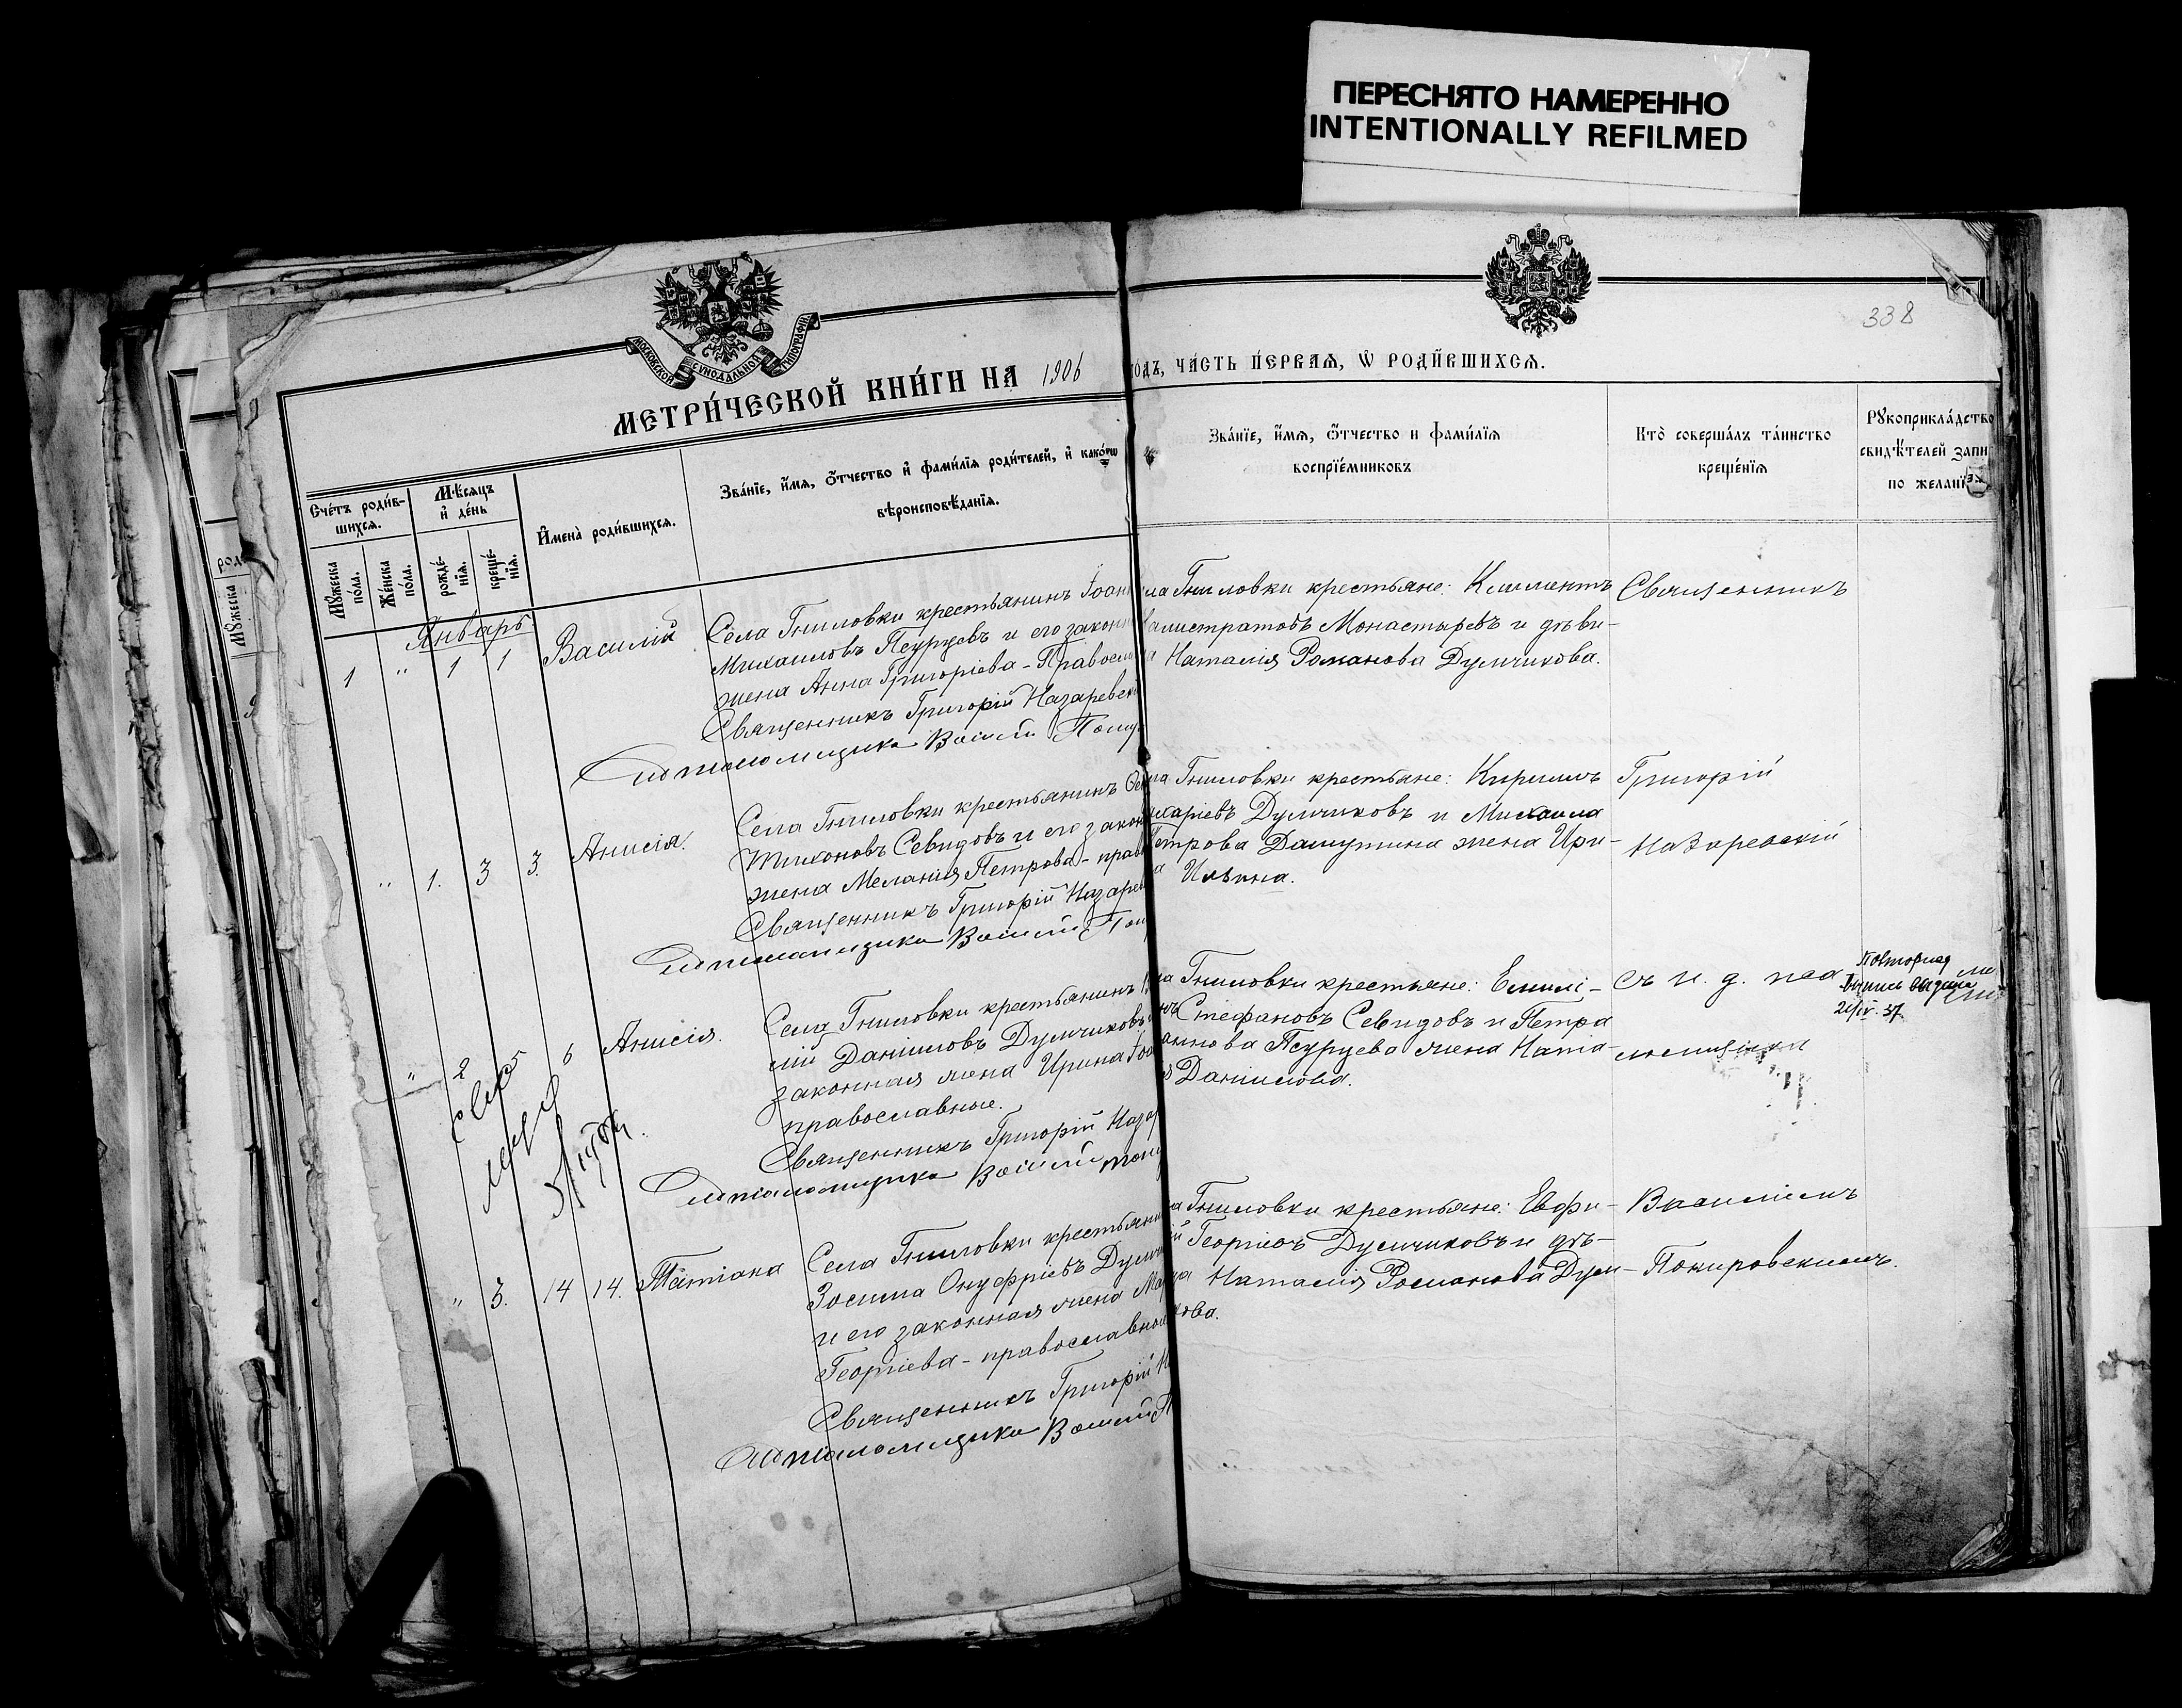 ПЕРЕСНЯТО НАМЕРЕННО
INTENTIONALLY REFILMED
338
МОСКОВСКОЙ СѴНОДАЛЬНОЙ ТИПОГРАФІИ
МЕТРИ́ЧЕСКОЙ КНИ́ГИ НА 1906
ОДЪ, ЧА́СТЬ ПЕ́РВАѦ, Ѡ РОДИ́ВШИХСѦ.
Сче́тъ роди́в-
шихсѧ.
Мꙋжеска по́ла.
Же́нска по́ла.
Мѣ́сѧцъ
и҆ де́нь
рожде́-
нїѧ.
креще́-
нїѧ.
И҆мена̀ роди́вшихсѧ.
Зва́нїе, и҆́мѧ, ѻ҆́тчество и҆ фами́лїѧ роди́телей, и҆ како́гѡ
вѣроисповѣ́данїѧ.
Зва́нїе, и҆́мѧ, ѻ҆́тчество и фами́лїѧ
воспрїе́мниковъ
Кто̀ соверша́лъ та́инство
креще́нїѧ
Рꙋкоприкла́дство
свидѣ́телей запи
по жела́нї
Январь
1 " 1 1 Василій
Села Гниловки крестьянинъ Іоан
Михаиловъ Псурцевъ и его закон
жена Анна Григоріева - Правосл
Священникъ Григорій Назаревск
Псаломщика
ла Гниловки крестьяне: Климентъ
алистратовъ Монастыревъ и дѣви-
а Наталія Романова Думчикова.
Священникъ
" 1. 3 3. Анисія.
Села Гниловки крестьянинъ
Тихоновъ Севидовъ и его закон
жена Меланія Петрова - прав
Священникъ Григорій Назарев
ла Гниловки крестьяне: Кириллъ
харіевъ Думчиковъ и Михаила
етрова Дашутина жена Ири-
а Ильина.
Григорій
Назаревскій
" 2 5 6 Анисія.
Села Гниловки крестьянинъ
лій Даніиловъ Думчиковъ
законная жена Ирина Іоа
православные.
Священникъ Григорій Назар
ла Гниловки крестьяне: Емилі-
нъ Стефановъ Севидовъ и Петра
аннова Псурцева жена Ната-
я Даніилова.
съ и. д. пса
ломщика
Повторная
выпись выдана
21/IV. 37.
" 3. 14 14. Татіана
Села Гниловки крестьяни
Зосима Онуфріевъ Думч
и его законная жена Ма
Георгіева - православно
Священникъ Григорій Н
а Гниловки крестьяне: Евфи-
й Георгіевъ Думчиковъ и дѣ-
ца Наталія Романова Дум-
кова.
Василіемъ
Покировскимъ.